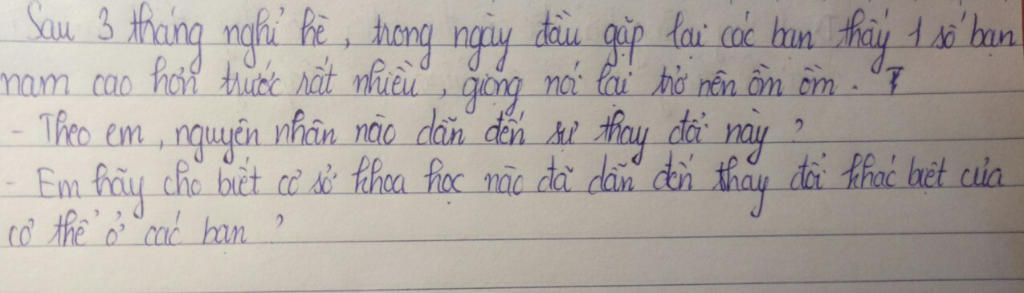 Sau 3 tháng nghỉ hè, trong ngày đầu gặp lại các bạn thấy 1 số bạn
nam cao hơn trước rất nhiều, giọng nói lại trở nên ồm ồm.
- Theo em, nguyên nhân nào dẫn đến sự thay đổi này?
- Em hãy cho biết cơ sở khoa học nào đã dẫn đến thay đổi khác biệt của
cơ thể ở các bạn?